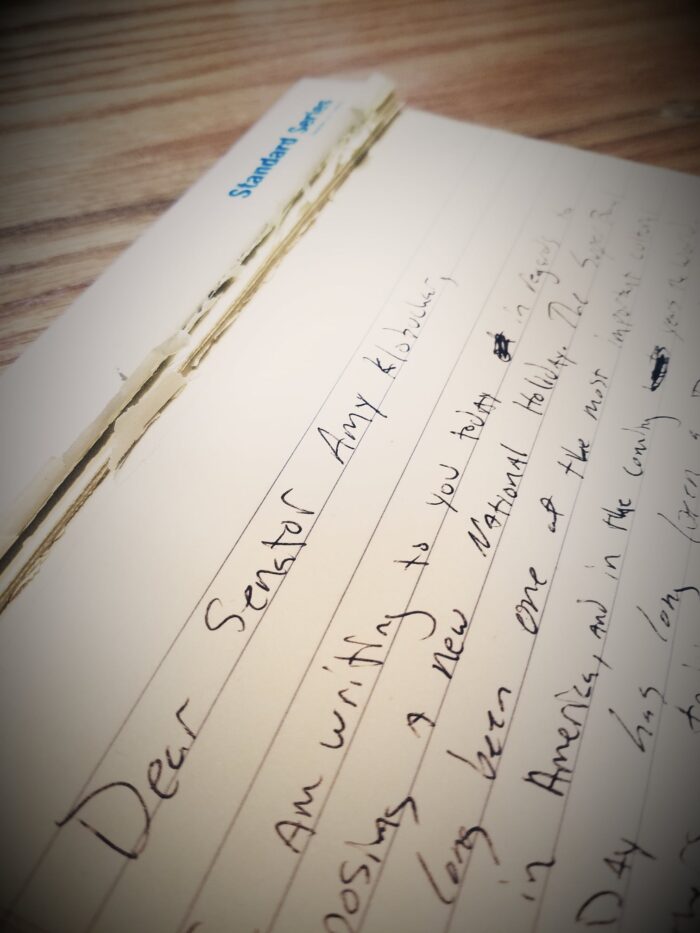 Standard Series
Dear Senator Amy Klobuchar,
Am writing to you today in regards to
posing a new National Holiday. The Super Bowl
long been one of the most important cultural
in America, and in the coming years
Day has long been a